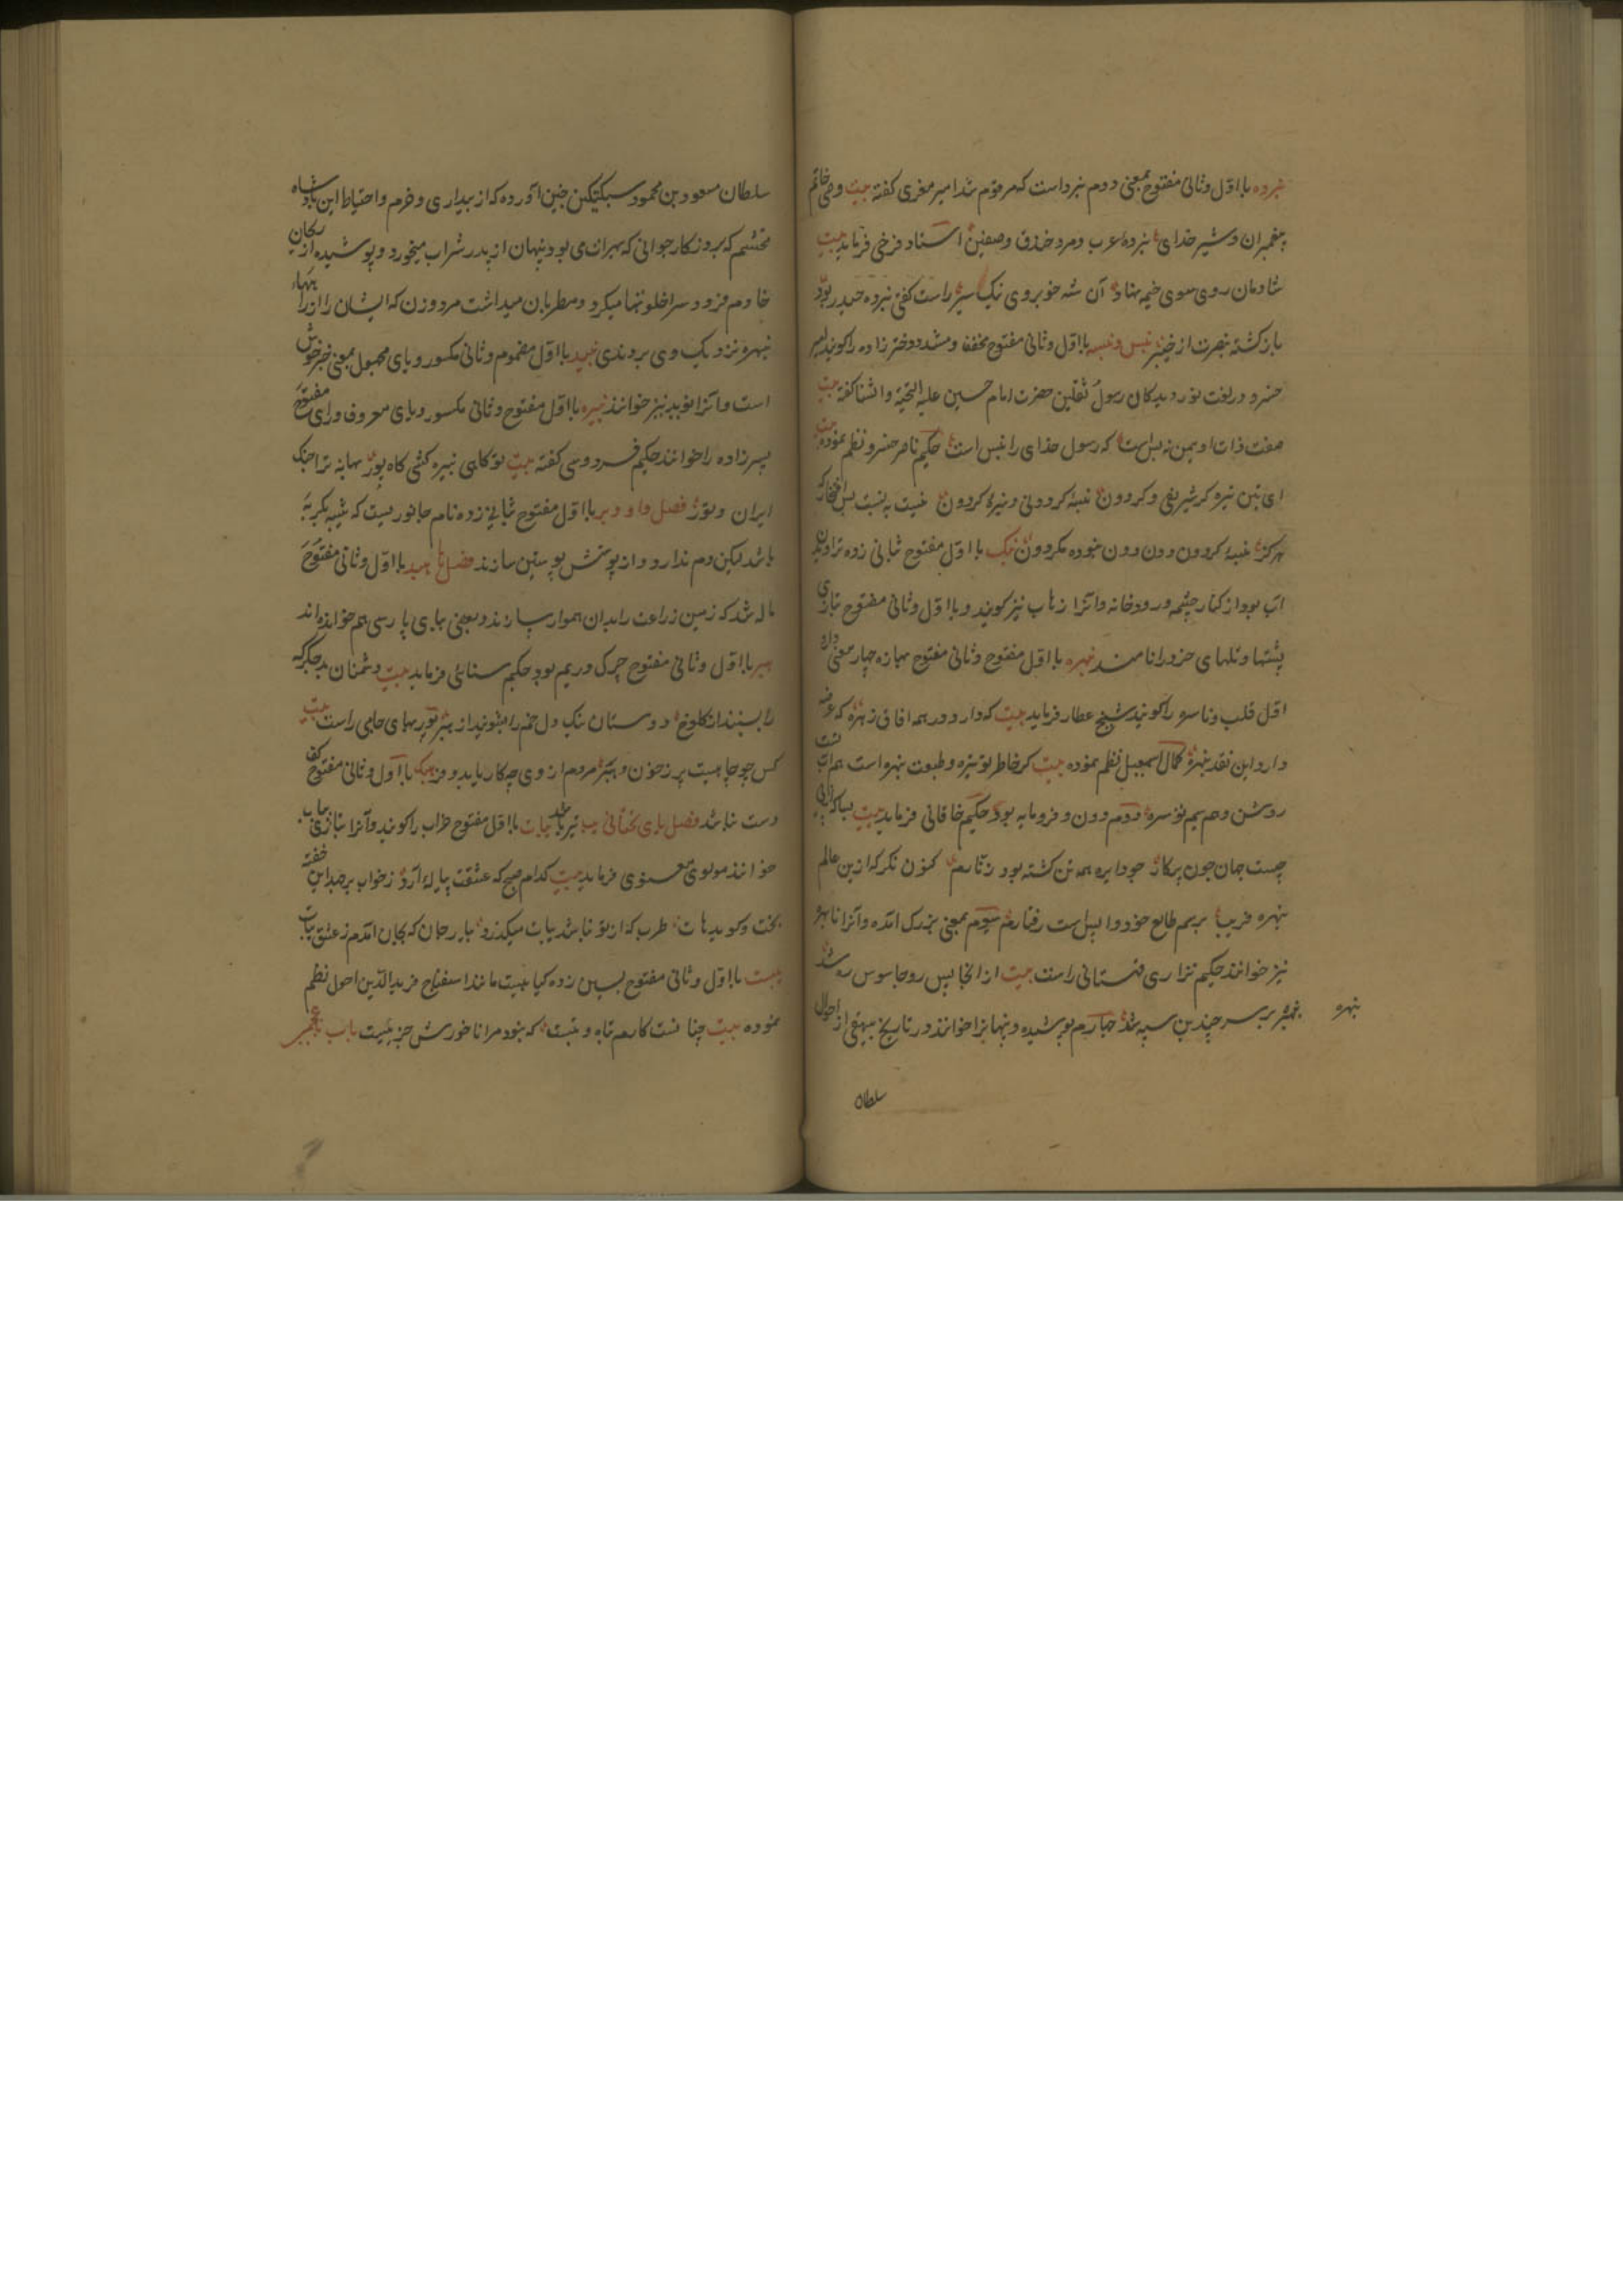 نبرده با اول و ثانی مفتوح بمعنی دوم نبرداست که مرقوم شد امیر معزی کفته بیت وصی خاتم
پیغمبران و شیر خدای نبردهٔ عرب و مرد خندق و صفین استاد فرخی فرماید بیت
شادمان روی سوی خیمه نهاد آن شه خوبروی نیک سیر راست کفتی نبرده حیدر بود
بازکشته بنصرت از خیبر نبس و نبسه با اول و ثانی مفتوح مخفف و مشدد دخترزاده را کویند امیر
خسرو در نعت نور دیدکان رسول ثقلین حضرت امام حسین علیه التحیة والثنا کفته بیت
صفت ذات او همین نه بس است که رسول خدای را نبس است حکیم ناصر خسرو نظم نموده بیت
ای نبیره کر شریفی و کر دون نبسهٔ کردونی و نبیرهٔ کردون نیست به نسبت بس افتخار که
هرکز نبسهٔ کردون دون دون نبوده مکر دون نبک با اول مفتوح بثانی زده تراویدن
آب بود از کنار چشمه و رودخانه و آنرا زهاب نیز کویند و با اول و ثانی مفتوح بتازی
پشتها و تلهای خرد را نامند نبهره با اول مفتوح و ثانی مفتوح بهازده چهار معنی دارد
اول قلب و ناسره را کویند شیخ عطار فرماید بیت که دارد در همه افاق زهره که عرضه
دارد این نقد نبهره کمال اسمعیل نظم نموده بیت کر خاطر تو تیره و طبعت نبهره است هم آب
روشن و هم سیم تو سره دوم دون و فرومایه بود حکیم خاقانی فرماید بیت
چیست جان چون پرکار چو دایره همه تن کشته بود زنارم کنون نکر که ازین عالم
نبهره فریب بریم طالع خود واپس است رفتارم سیوم بمعنی بزرک آمده و آنرا نابهره
نیز خوانند حکیم نزاری قهستانی راست بیت از انجا پس رو جاسوس ره شد
نبهره بر سر چندین سپه شد چهارم پوشیده و پنهانرا خوانند در تاریخ بیهقی از احوال
نبهره
سلطان
سلطان مسعود بن محمود سبکتکین چنین آورده که از بیداری و حزم و احتیاط این پادشاه
محتشم که بروزکار جوانی که بهراة می بود پنهان از پدر شراب میخورد و پوشیده از ریحان
خادم فرود سرا خلوتها میکرد و مطربان میداشت مرد و زن که ایشان را از راههاء
نبهره نزدیک وی بردندی نبید با اول مضموم و ثانی مکسور و یای مجهول بمعنی خبر خوش
است و آنرا نوید نیز خوانند نبیره با اول مفتوح و ثانی مکسور و یای معروف و رای مفتوح
پسرزاده را خوانند حکیم فردوسی کفته بیت تو کاهی نبیره کشی کاه پور بهانه ترا جنک
ایران و تور فصل واو وبر با اول مفتوح بثانی زده نام جانوریست که شبیه بکربهٔ
باشد لیکن دم ندارد و از پوستش پوستین سازند فصل ها هبد با اول و ثانی مفتوح
ماله شد که زمین زراعت را بدان هموار سازند و بعضی ببای پارسی هم خوانده اند
هبر با اول و ثانی مفتوح چرک و ریم بود حکیم سنائی فرماید بیت دشمنان بدجکرکه
را بستند از کلوخ دوستان نیک دل خم را بشویند از هبر پور بهای جامی راست بیت
کس چو جامیست پر ز خون و هبر مردم از وی چه کار باید و فر هبک با اول و ثانی مفتوح کف
دست باشد فصل یای تحتانی یباب با اول مفتوح خراب را کویند و آنرا بتازی
خوانند مولوی معنوی فرماید بیت کدام صبح که عشقت پیاله آرد ز خواب برجهد این خفته
بخت و کوید هات طرب که از تو نباشد بیات میکذرد بیار جان که بجان آمدم ز عشق یباب
یبست با اول و ثانی مفتوح بسین زده کیاهیست مانند اسفناج فرید الدین احول نظم
نموده بیت چنانست کارم تباه و یبست که نبود مرا ناخورش جز یبست باب